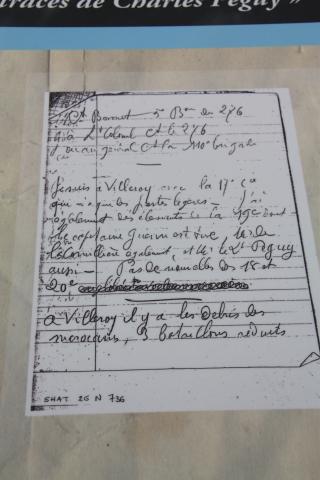 traces de Charles Péguy »
Lt Bonnet 5e Bon du 276
à Lt Colonel Ct le 276
au général Ct la 110e brigade
Je suis à Villeroy avec la 17e Cie
qui n'a que des pertes légères - J'ai
également des éléments de la 19e dont
le capitaine Guérin est tué, Mr de
la Cornillière également, et Mr le Lt Péguy
aussi - Pas de nouvelles des 18 et
20e
à Villeroy il y a les débris des
marocains, 3 bataillons réduits
SHAT 26 N 736